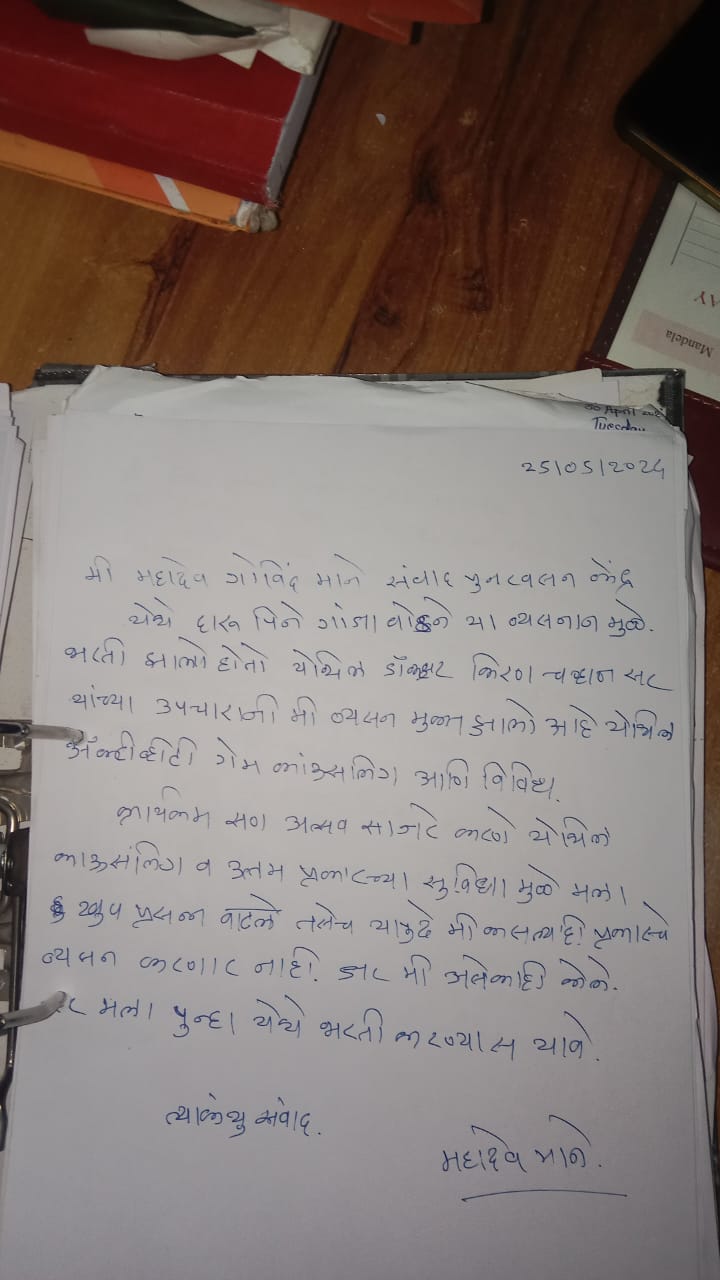 AY
Mandela
30 April 202
Tuesday
25/05/2024
मी महादेव गोविंद माने संवाद पुनरवसन केंद्र
येथे दारू पिने गांजा वोढने या व्यसनान मुळे.
भरती झालो होतो येथिल डॉक्टर किरण चव्हान सर
यांच्या उपचारानी मी व्यसन मुक्त झालो आहे येथिल
ॲक्टीव्हीटी गेम कांऊसलिंग आणि विविध.
कार्यक्रम सण उत्सव साजरे करणे येथिल
काऊसंलिंग व उत्तम प्रकारच्या सुविधा मुळे मला
खुप प्रसन्न वाटले तसेच यापुढे मी कसल्याही प्रकारचे
व्यसन करणार नाही. जर मी असेकाही केले.
तर मला पुन्हा येथे भरती करण्यास यावे.
त्याकेयु संवाद.
महादेव माने.